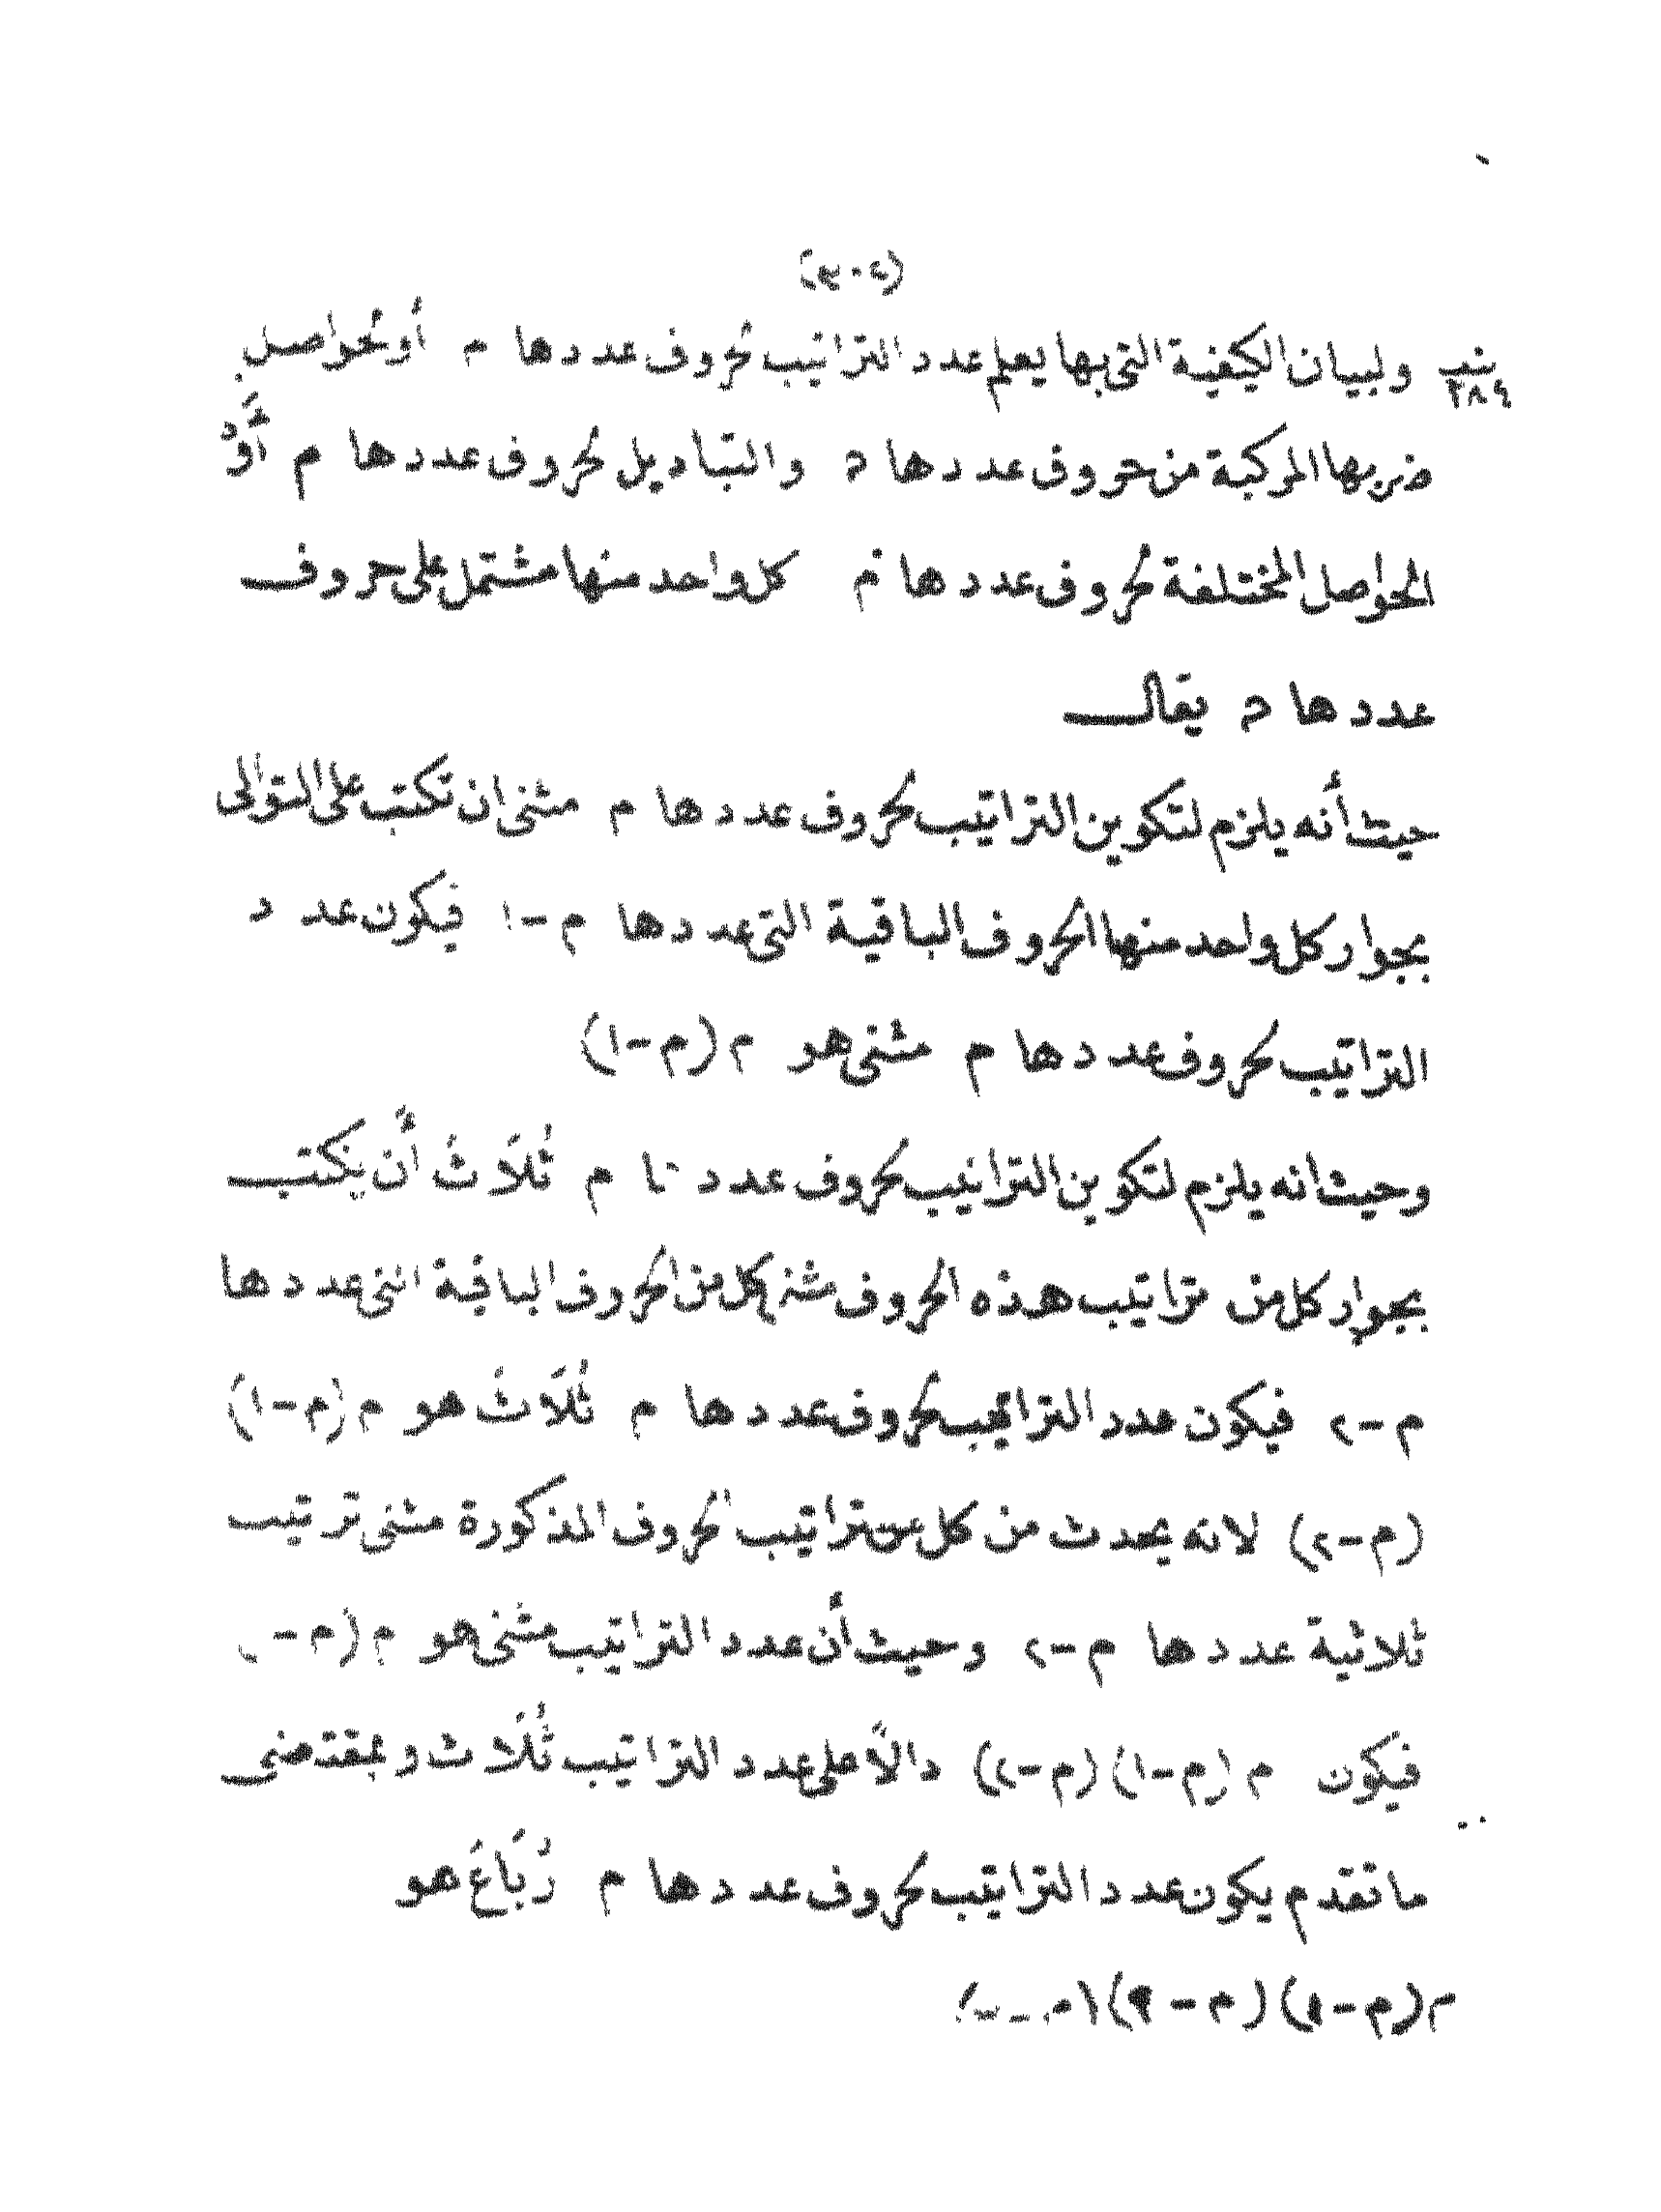 (٣٠٤)
بند ٢٨٤ ولبيان الكيفية التى بها يعلم عدد التراتيب لحروف عددها م أو لحواصل
ضربها المركبة من حروف عددها د والتباديل لحروف عددها م أو
الحواصل المختلفة لحروف عددها م كل واحد منها مشتمل على حروف
عددها د يقال
حيث أنه يلزم لتكوين التراتيب لحروف عددها م مثنى ان تكتب على التوالى
بجوار كل واحد منها الحروف الباقية التى عددها م-١ فيكون عدد
التراتيب لحروف عددها م مثنى هو م(م-١)
وحيث انه يلزم لتكوين التراتيب لحروف عددها م ثُلَاثَ أن يكتب
بجوار كل من تراتيب هذه الحروف مثنى كل من الحروف الباقية التى عددها
م-٢ فيكون عدد التراتيب لحروف عددها م ثُلَاثَ هو م(م-١)
(م-٢) لانه يحدث من كل من تراتيب الحروف المذكورة مثنى تراتيب
ثلاثية عددها م-٢ وحيث أن عدد التراتيب مثنى هو م(م-
فيكون م(م-١)(م-٢) دالاً على عدد التراتيب ثُلَاث وبمقتضى
ما تقدم يكون عدد التراتيب لحروف عددها م رُبَاعَ هو
م(م-١)(م-٢)(م-